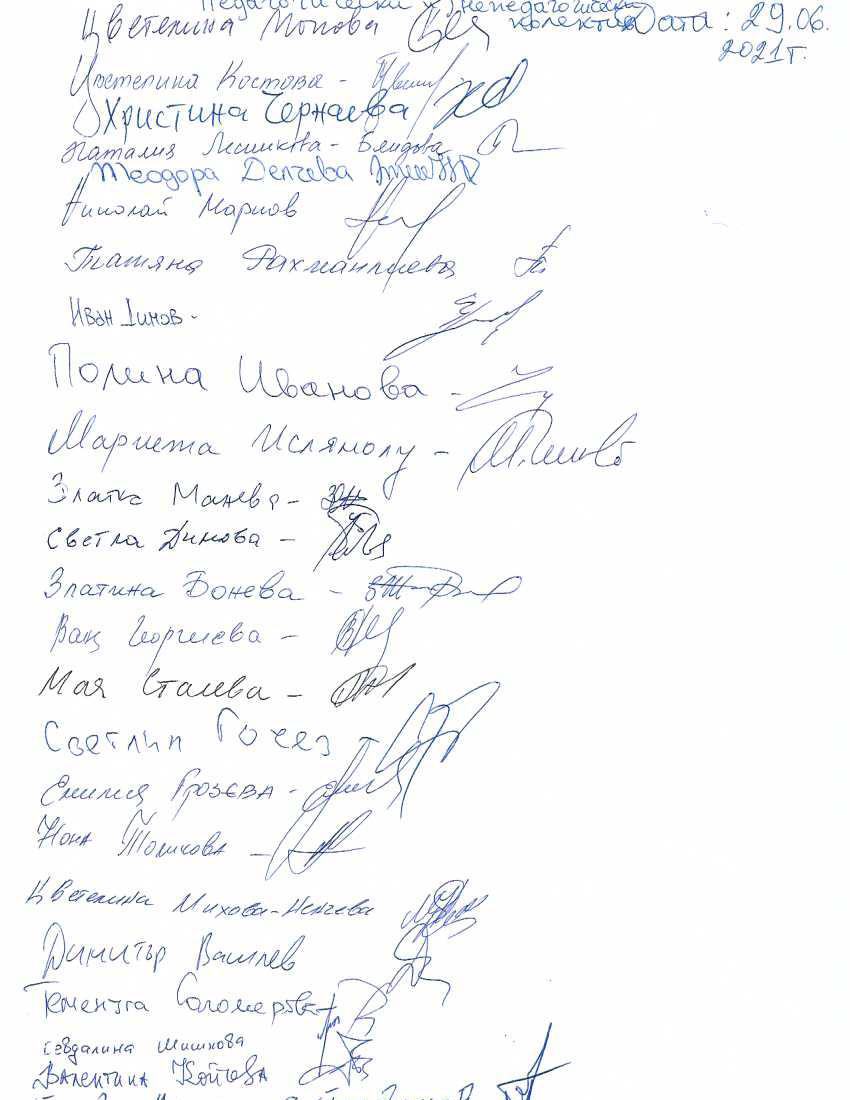 Педагогически и непедагогически
колектив Дата: 29.06.
2021г.
Цветелина Монова
Цветелина Костова -
Христина Чернаева
Наталия Лесикова - Бендова
Теодора Делчева
Николай Марков
Татяна
Иван Динов -
Полина Иванова -
Мариета Ислямолу -
Златка Манева -
Светла Динова -
Златина Бонева -
Георгиева -
Мая Сталева -
Светлин Гочев -
Емилия Грозева -
Нона Тошкова -
Цветелина Михова-Ненчева
Димитър Василев
Теменуга
Севдалина Мишкова
Валентина Койчова